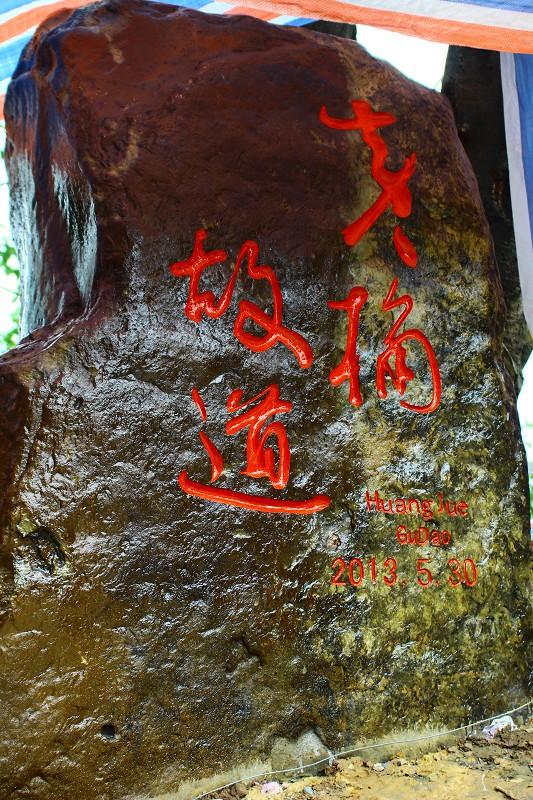 黄桷
故道
HuangJue
GuDao
2013.5.30